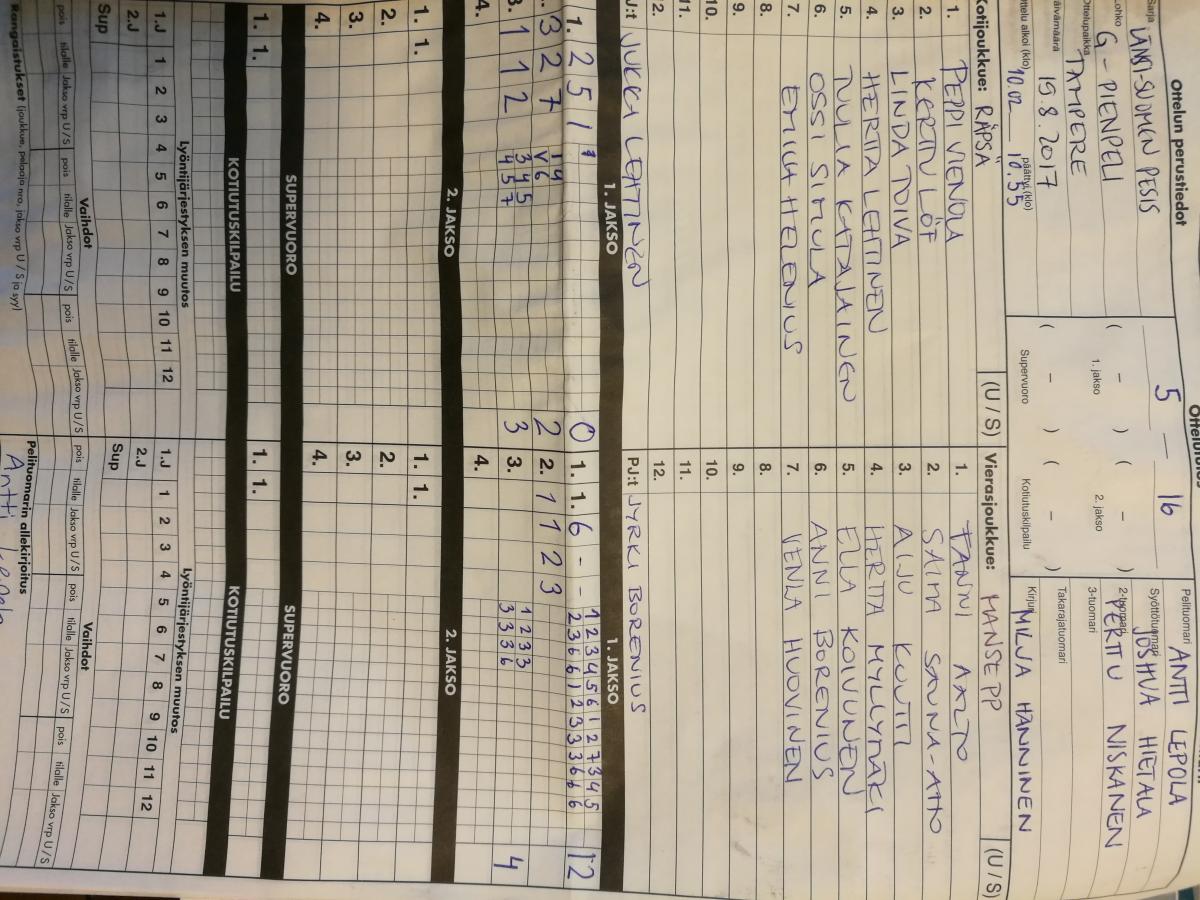 Ottelun perustiedot
Sarja LÄNSI-SUOMEN PESIS
Lohko G - PIENPELI
Ottelupaikka TAMPERE
Päivämäärä 19.8.2017
Ottelu alkoi (klo) 10.02 päättyi (klo) 10.55
Ottelutulos
5 — 16
( - ) ( - )
1. jakso 2. jakso
( - ) ( - )
Supervuoro Kotiutuskilpailu
Pelituomari ANTTI LEPOLA
Syöttötuomari JOSHUA HIETALA
2-tuomari PERTTU NISKANEN
3-tuomari
Takarajatuomari
Kirjuri MILJA HÄNNINEN
Kotijoukkue: RÄPSÄ (U / S)
1. PEPPI VIENOLA
2. KERTTU LÖF
3. LINDA TOIVA
4. HERTTA LEHTINEN
5. TUULIA KATAJAINEN
6. OSSI SIMULA
7. EMILIA HELENIUS
8.
9.
10.
11.
12.
PJ:t JUKKA LEHTINEN
Vierasjoukkue: MANSE PP (U / S)
1. FANNI AALTO
2. SAIMA SAUNA-AHO
3. AIJU KUUTTI
4. HERTTA MYLLYMÄKI
5. ELLA KOIVUNEN
6. ANNI BORENIUS
7. VENLA HUOVINEN
8.
9.
10.
11.
12.
PJ:t JYRKI BORENIUS
1. JAKSO 1. JAKSO
1. 2 5 1 0
2. 3 2 7 2
3. 1 1 2 345 457 3
4.
1. 1. 6 - - 123456127345 236612333666 12
2. 1 1 2 3
3. 1233 3336 4
4.
2. JAKSO 2. JAKSO
1. 1. 1. 1.
2. 2.
3. 3.
4. 4.
SUPERVUORO SUPERVUORO
1. 1. 1. 1.
KOTIUTUSKILPAILU KOTIUTUSKILPAILU
Lyöntijärjestyksen muutos Lyöntijärjestyksen muutos
1.J 1 2 3 4 5 6 7 8 9 10 11 12
2.J
Sup
1.J 1 2 3 4 5 6 7 8 9 10 11 12
2.J
Sup
Vaihdot Vaihdot
pois tilalle Jakso vrp U/S pois tilalle Jakso vrp U/S pois tilalle Jakso vrp U/S
pois tilalle Jakso vrp U/S pois tilalle Jakso vrp U/S pois tilalle Jakso vrp U/S
Rangaistukset (joukkue, pelaaja nro, jakso vrp U / S ja syy)
Pelituomarin allekirjoitus
Antti Lepola